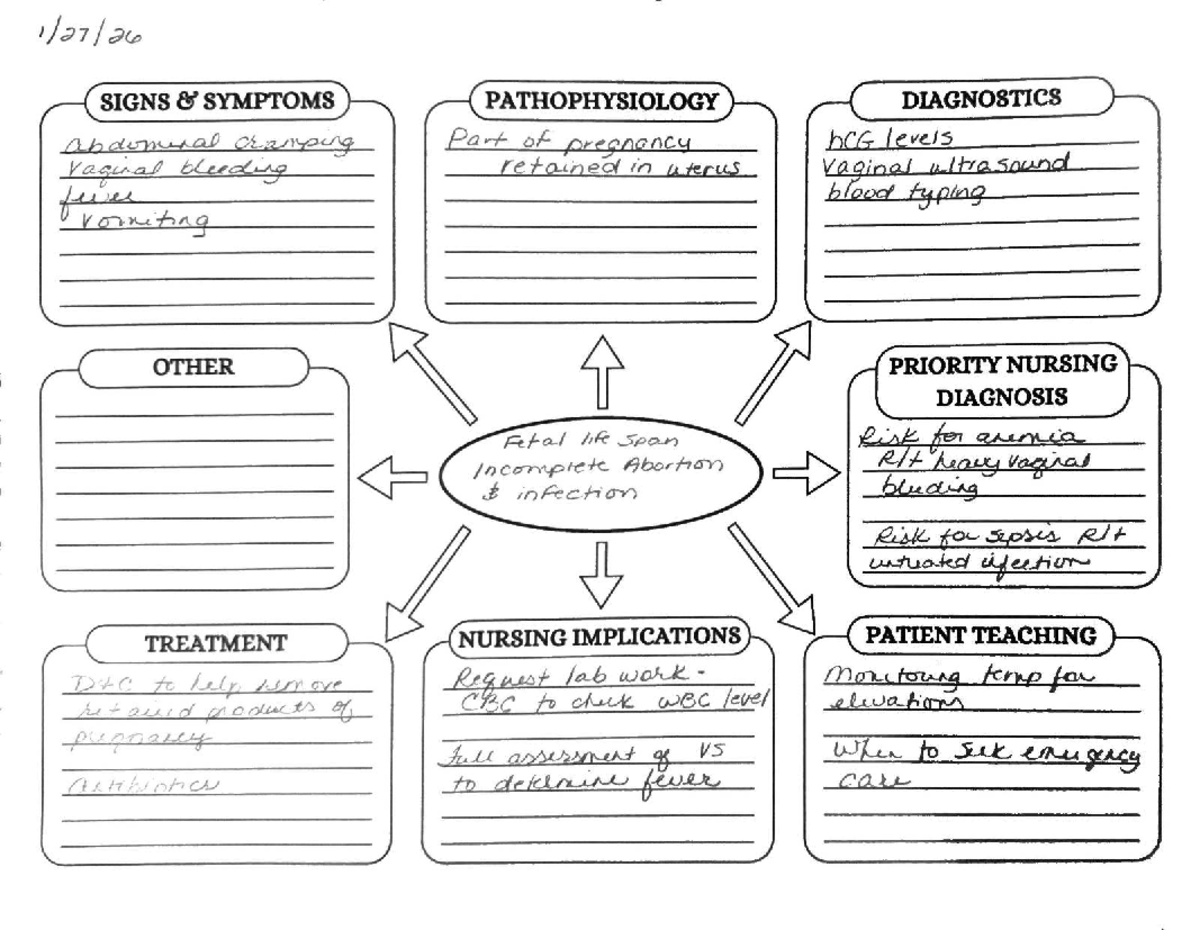 1/27/26
SIGNS & SYMPTOMS
Abdominal cramping
Vaginal bleeding
fever
Vomiting
PATHOPHYSIOLOGY
Part of pregnancy
retained in uterus
DIAGNOSTICS
hCG levels
Vaginal ultrasound
blood typing
OTHER
Fetal life span
Incomplete Abortion
& infection
PRIORITY NURSING
DIAGNOSIS
Risk for anemia
R/t heavy vaginal
bleeding
Risk for sepsis R/t
untreated infection
TREATMENT
D+C to help remove
retained products of
pregnancy
Antibiotics
NURSING IMPLICATIONS
Request lab work -
CBC to check WBC level
Full assessment of VS
to determine fever
PATIENT TEACHING
Monitoring temp for
elevations
When to seek emergency
care